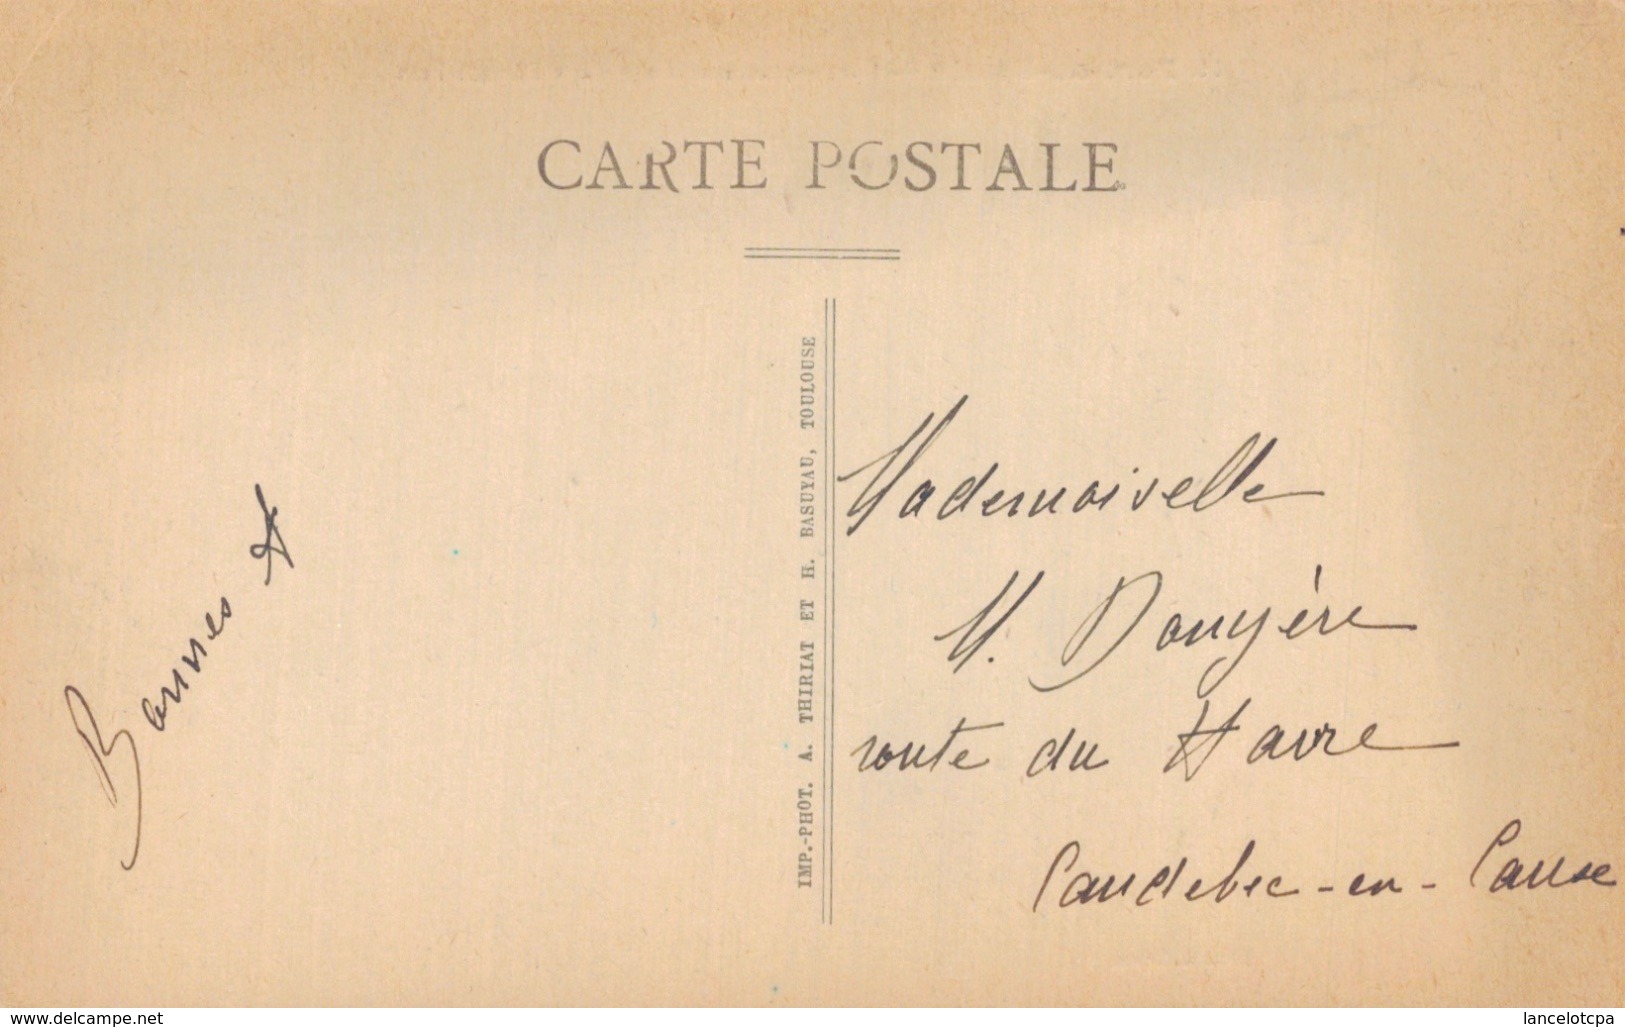 CARTE POSTALE
IMP.-PHOT. A. THIRIAT ET H. BASUYAU, TOULOUSE
Mademoiselle
M. Douyère
route du Havre
Caudebec-en-Cause
www.delcampe.net
lancelotcpa